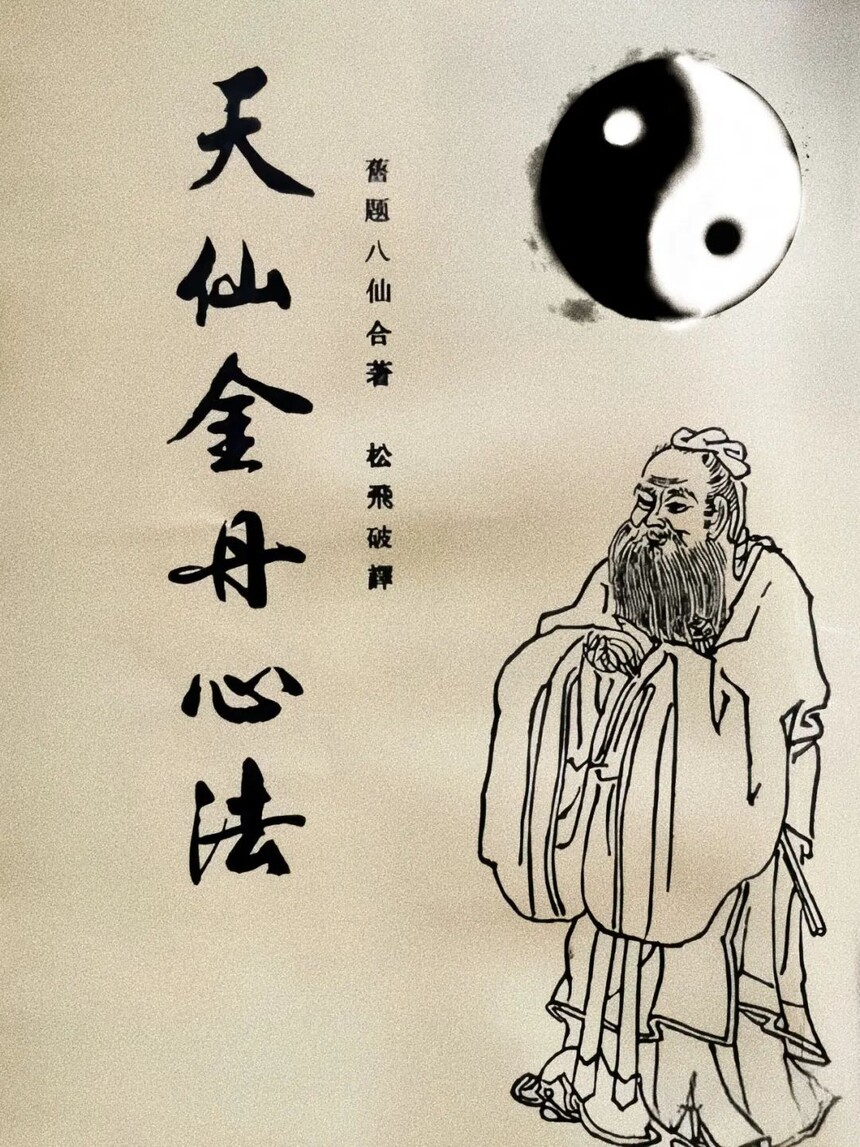 天仙金丹心法
舊题八仙合著 松飛破譯